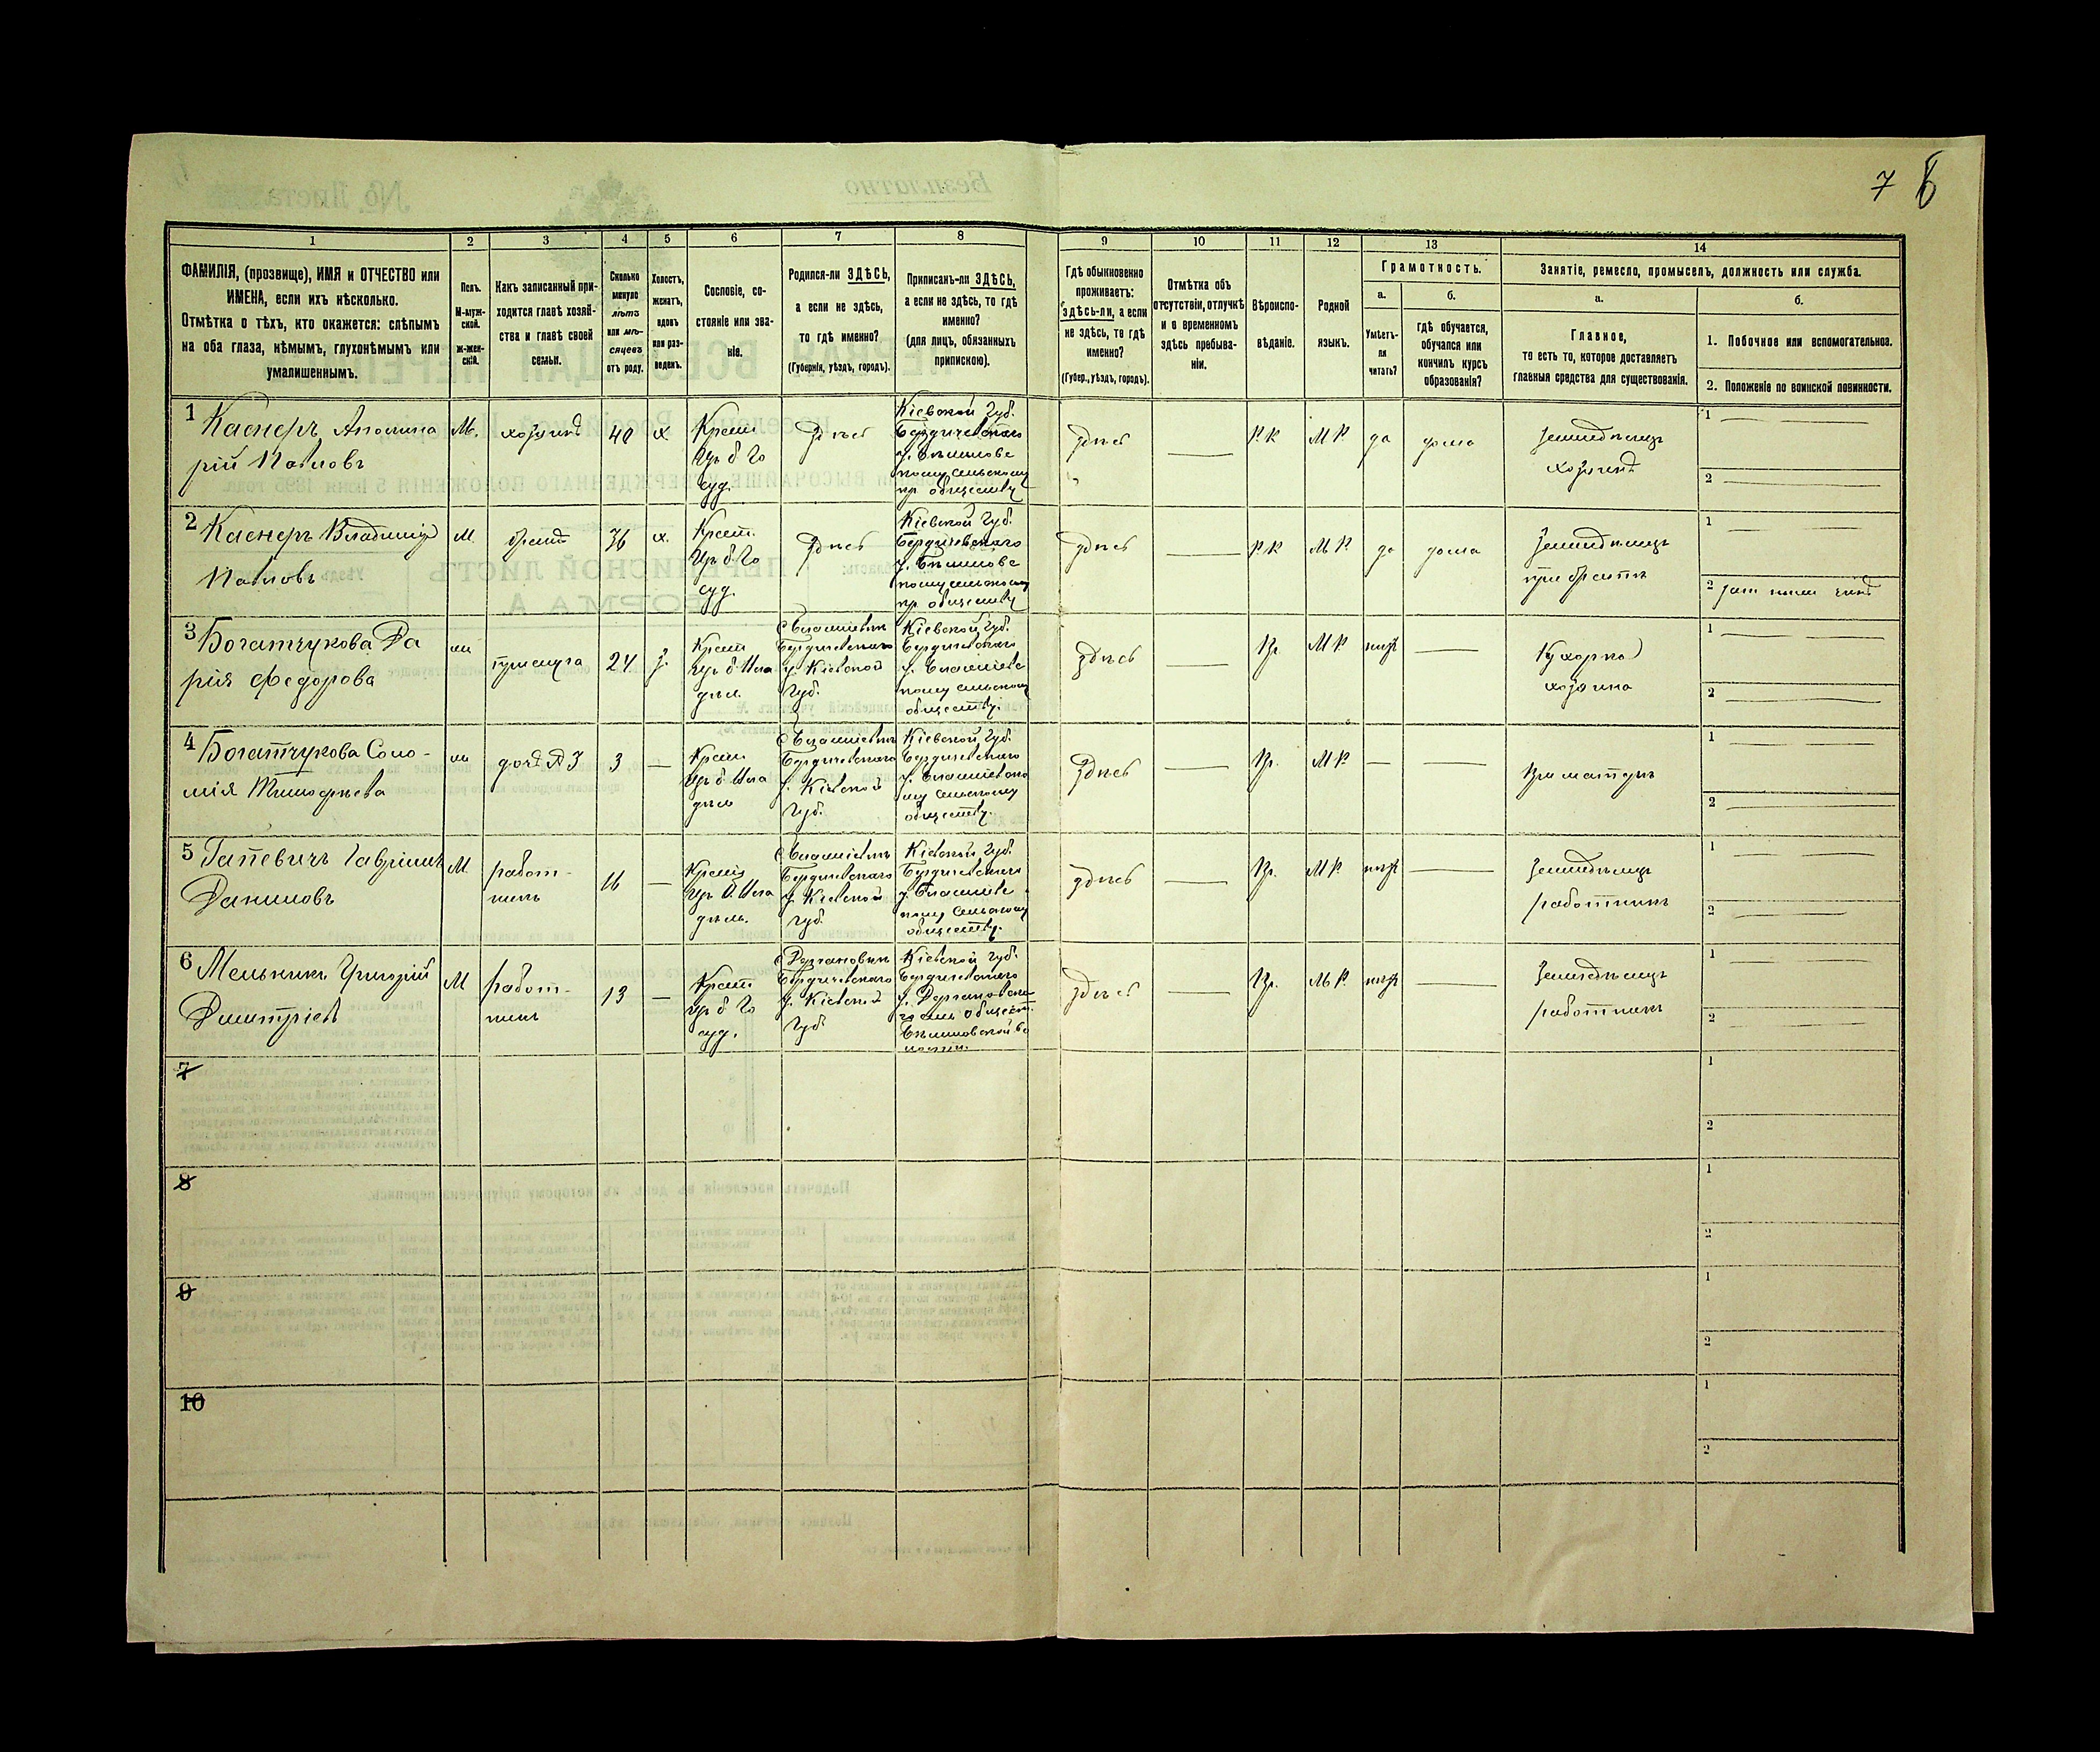 7 8
1
2
3
4
5
6
7
8
9
10
11
12
13
14
ФАМИЛІЯ, (прозвище), ИМЯ и ОТЧЕСТВО или
ИМЕНА, если ихъ нѣсколько.
Отмѣтка о тѣхъ, кто окажется: слѣпымъ
на оба глаза, нѣмымъ, глухонѣмымъ или
умалишеннымъ.
Полъ.
М-муж-
ской.
Ж-жен-
скій.
Какъ записанный при-
ходится главѣ хозяй-
ства и главѣ своей
семьи.
Сколько
минуло
лѣтъ
или мѣ-
сяцевъ
отъ роду.
Холостъ,
женатъ,
вдовъ
или раз-
веденъ.
Сословіе, со-
стояніе или зва-
ніе.
Родился-ли ЗДѢСЬ,
а если не здѣсь,
то гдѣ именно?
(Губернія, уѣздъ, городъ).
Приписанъ-ли ЗДѢСЬ,
а если не здѣсь, то гдѣ
именно?
(для лицъ, обязанныхъ
припискою).
Гдѣ обыкновенно
проживаетъ:
здѣсь-ли, а если
не здѣсь, то гдѣ
именно?
(Губер., уѣздъ, городъ).
Отмѣтка объ
отсутствіи, отлучкѣ
и о временномъ
здѣсь пребыва-
ніи.
Вѣроиспо-
вѣданіе.
Родной
языкъ.
Грамотность.
а.
Умѣетъ-
ли
читать?
б.
гдѣ обучается,
обучался или
кончилъ курсъ
образованія?
Занятіе, ремесло, промыселъ, должность или служба.
а.
Главное,
то есть то, которое доставляетъ
главныя средства для существованія.
б.
1. Побочное или вспомогательное.
2. Положеніе по воинской повинности.
1 Каснеръ Аполина
рій Павловъ
М.
хозяинъ
40
х
Крест.
Изъ б. Го
суд.
Здѣсь
Кіевской Губ.
Бердичевскаго
у.
кому сельскому
обществу
здѣсь
Р. К
М Р.
да
дома
Земледѣлецъ
хозяинъ
1
2
2 Каснеръ Владиміръ
Павловъ
М
братъ
36
х.
Крест.
Изъ б. Го
суд.
Здѣсь
Кіевской Губ.
Бердичевскаго
у.
кому сельскому
обществу
здѣсь
Р. К
М Р.
да
дома
Земледѣлецъ
при братѣ
1
2
3 Богатчукова Да
рія Федорова
ж
прислуга
24
з.
Крест
Изъ б. Вла
дѣл.
Бердичевскаго
у. Кіевской
Губ.
Кіевской Губ.
Бердичевскаго
у.
кому сельскому
обществу.
здѣсь
Пр.
М Р
нѣтъ
Кухарка
хозяина
1
2
4 Богатчукова Соло-
мія Тимофѣева
ж
дочь Д 3
3
Крест
Изъ б. Вла
дѣл
Бердичевскаго
у. Кіевской
Губ.
Кіевской Губ.
Бердичевскаго
у.
му сельскому
обществу.
Здѣсь
Пр.
М Р
При матери
1
2
5 Гапевичъ Гавріилъ
Даниловъ
М
работ-
никъ
16
Крест
Изъ б. Вла
дѣл.
Бердичевскаго
у. Кіевской
губ.
Кіевской Губ.
Бердичевскаго
у.
кому сельскому
обществу.
здѣсь
Пр.
М Р.
нѣтъ
Земледѣлецъ
работникъ
1
2
6 Мельникъ Григорій
Дмитріевъ
М
работ-
никъ
13
Крест
Изъ б Го
суд.
Бердичевскаго
у. Кіевской
Губ.
Кіевской Губ.
Бердичевскаго
у.
здѣсь
Пр.
М Р.
нѣтъ
Земледѣлецъ
работникъ
1
2
7
1
2
8
1
2
9
1
2
10
1
2